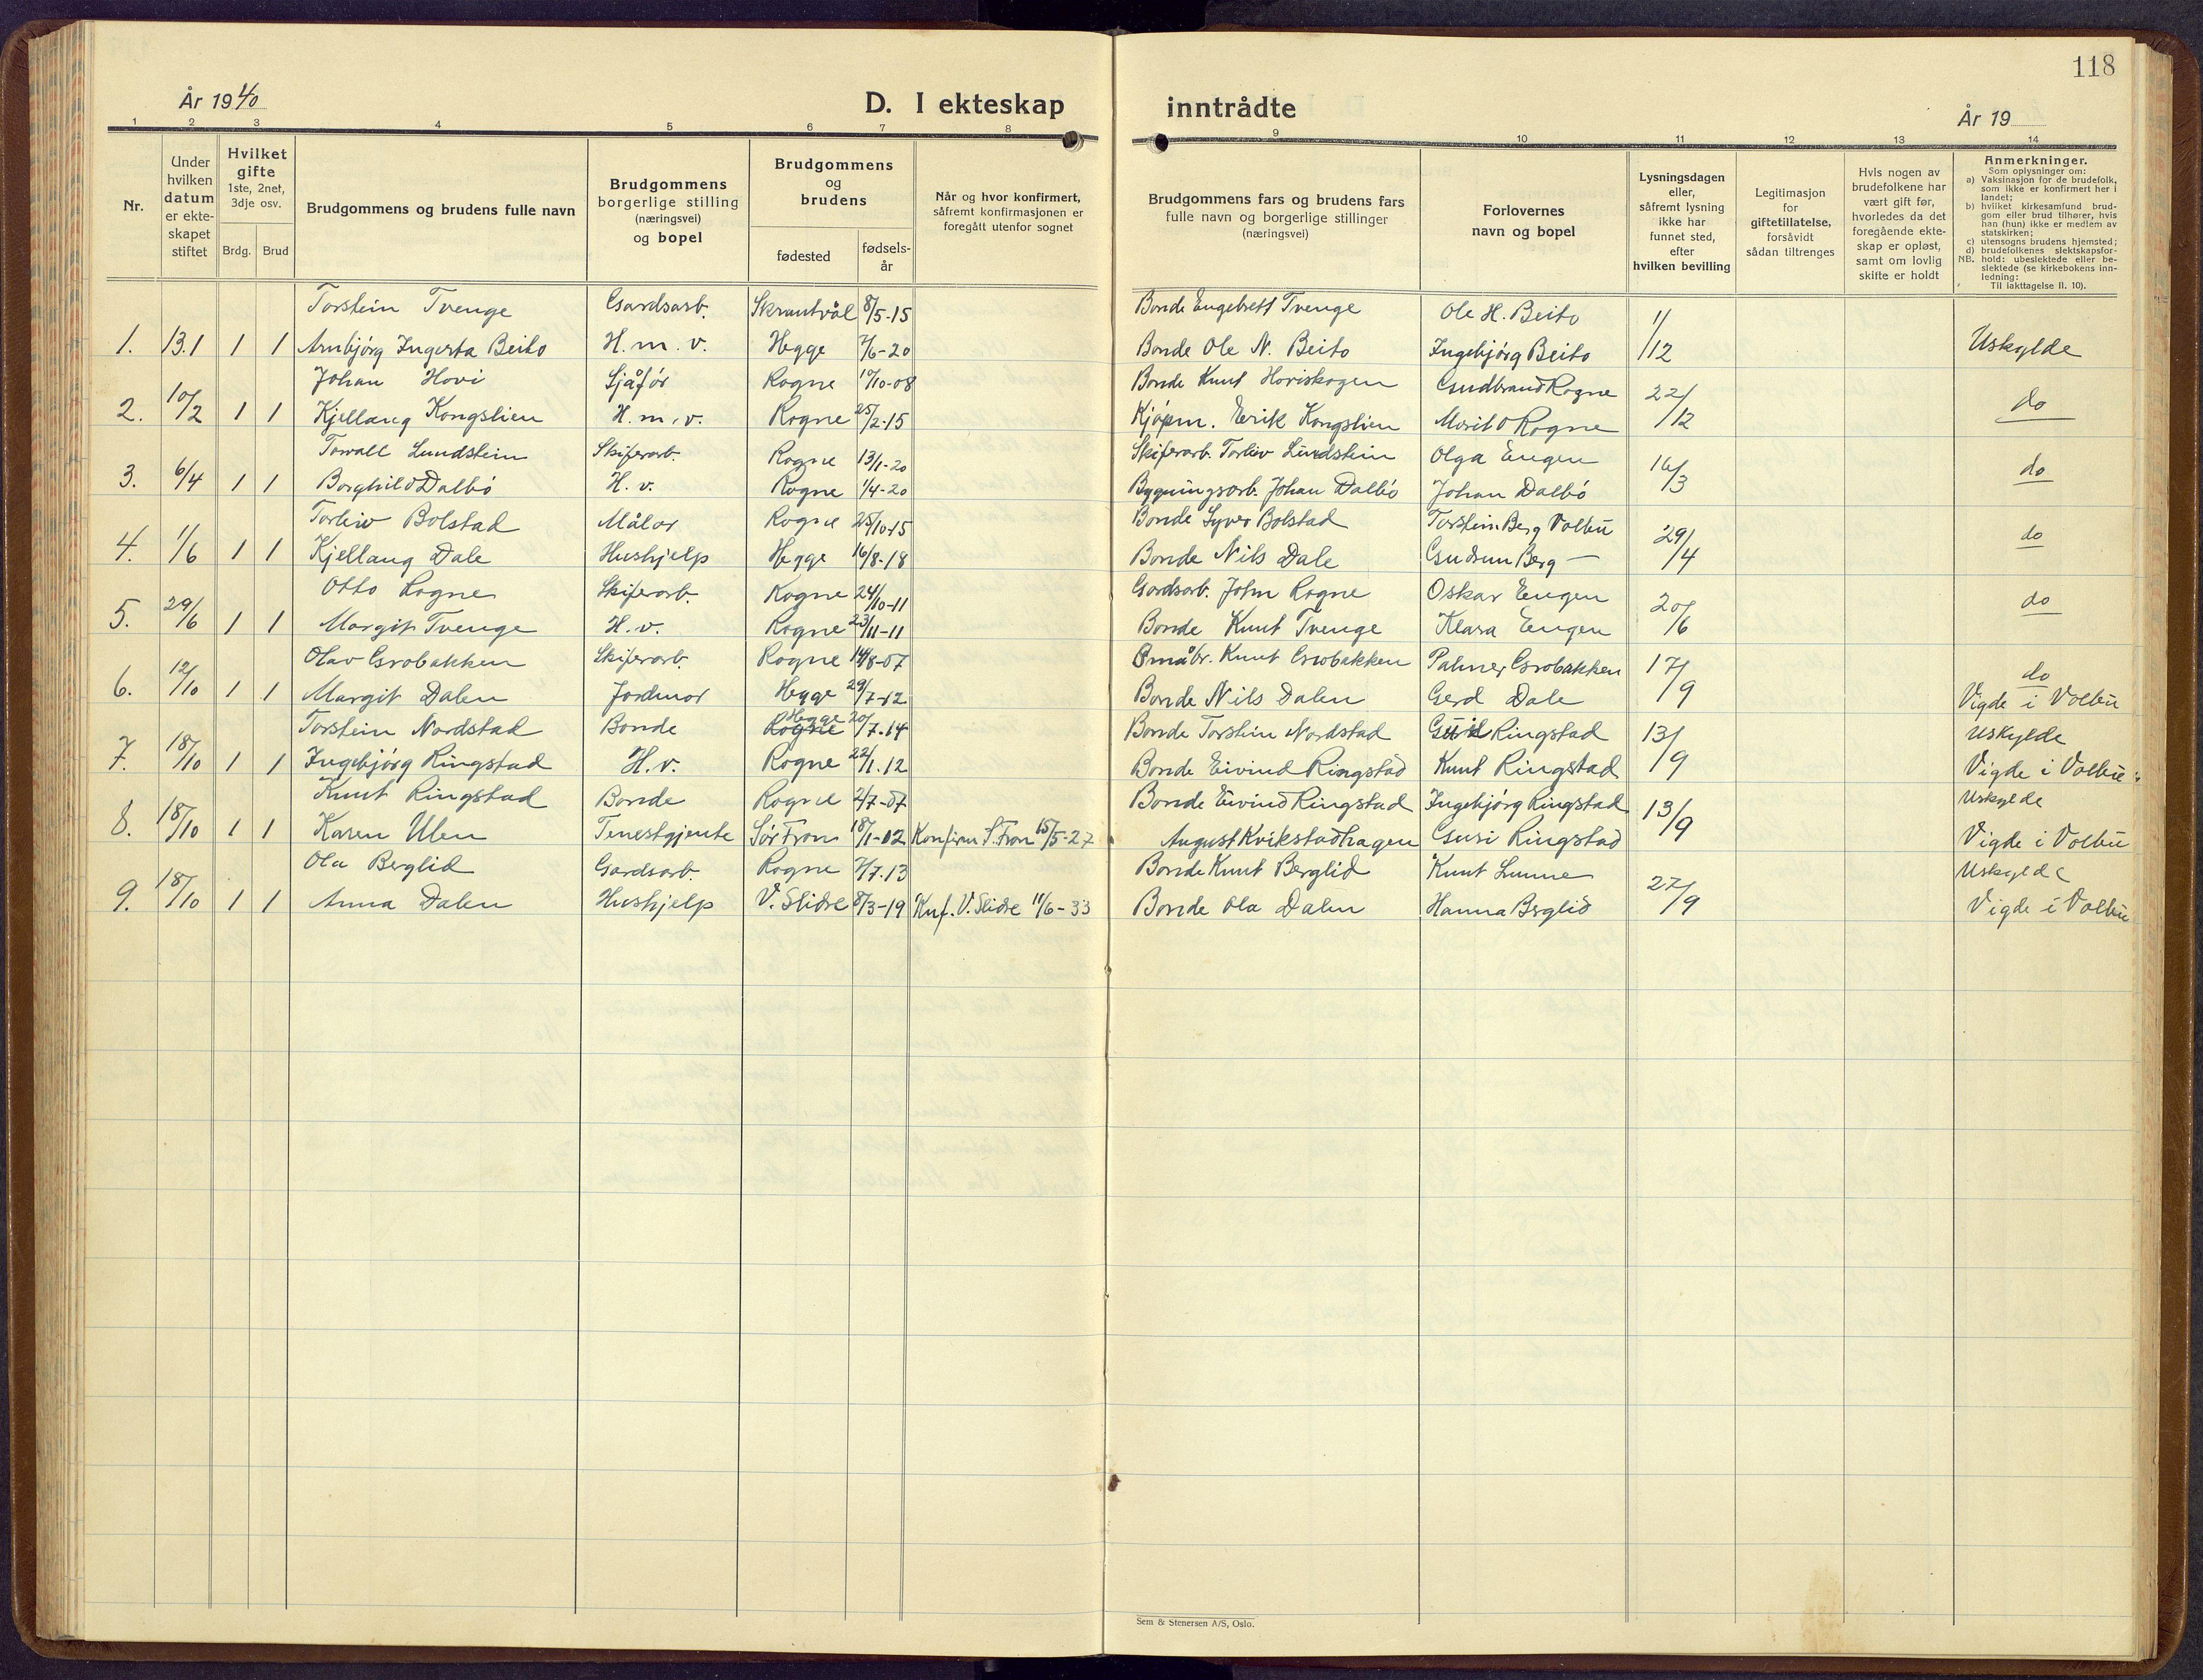 118
År 1940
D. I ekteskap inntrådte
År 19
1 2 3 4 5 6 7 8 9 10 11 12 13 14
Nr.
Under hvilken datum er ekte-skapet stiftet
Hvilket gifte 1ste, 2net, 3dje osv.
Brdg. Brud
Brudgommens og brudens fulle navn
Brudgommens borgerlige stilling (næringsvei) og bopel
Brudgommens og brudens
fødested
fødsels-år
Når og hvor konfirmert, såfremt konfirmasjonen er foregått utenfor sognet
Brudgommens fars og brudens fars fulle navn og borgerlige stillinger (næringsvei)
Forlovernes navn og bopel
Lysningsdagen eller, såfremt lysning ikke har funnet sted, efter hvilken bevilling
Legitimasjon for giftetillatelse, forsåvidt sådan tiltrenges
Hvis nogen av brudefolkene har vært gift før, hvorledes da det foregående ekte-skap er opløst, samt om lovlig skifte er holdt
Anmerkninger.
Som oplysninger om:
a) Vaksinasjon for de brudefolk, som ikke er konfirmert her i landet;
b) hvilket kirkesamfund brud-gom eller brud tilhører, hvis han (hun) ikke er medlem av statskirken;
c) utensogns brudens hjemsted;
d) brudefolkenes slektskapsfor-hold: ubeslektede eller be-slektede (se kirkebokens inn-ledning:
NB.
Til iakttagelse II. 10).
Torstein Tvenge Gardsarb. Skrautvål 8/5-15 Bonde Engebrett Tvenge Ole H. Beito
1. 13.1 1 1 Arnbjørg Ingerta Beito H.m.v. Hegge 7/6-20 Bonde Ole N. Beito Ingebjørg Beito 1/12 Uskylde
Johan Hovi Sjåfør Rogne 10/10-08 Bonde Knut Hoviskogen Gudbrand Rogne
2. 10/2 1 1 Kjellaug Kongslien H.m.v. Rogne 25/2-15 Kjøpm. Erik Kongslien Marit O Rogne 22/12 do
Torvall Lundstein Skiferarb. Rogne 13/1-20 Skiferarb. Torleiv Lundstein Olga Engen
3. 6/4 1 1 Borghild Dalbø H.v. Rogne 1/4-20 Bygningsarb. Johan Dalbø Johan Dalbø 16/3 do
Torleiv Bolstad Målar Rogne 25/10-15 Bonde Syver Bolstad Torstein Berg Volbu
4. 1/6 1 1 Kjellaug Dale Hushjelp Hegge 16/8-18 Bonde Nils Dale Gudrun Berg — 29/4 do
Otto Rogne Skiferarb. Rogne 24/10-11 Gardsarb. John Rogne Oskar Engen
5. 29/6 1 1 Margit Tvenge H.v. Rogne 23/11-11 Bonde Knut Tvenge Klara Engen 20/6 do
Olav Grobakken Skiferarb. Rogne 14/8-07 Småbr. Knut Grobakken Palmer Grobakken do
6. 12/10 1 1 Margit Dalen Jordmor Hegge 29/7-12 Bonde Nils Dalen Gerd Dale 17/9 Vigde i Volbu
Torstein Nordstad Bonde Rogne Hegge 20/7.14 Bonde Torstein Nordstad Ringstad Uskylde
7. 18/10 1 1 Ingebjørg Ringstad H.v. Rogne 22/1.12 Bonde Eivind Ringstad Knut Ringstad 13/9 Vigde i Volbu
Knut Ringstad Bonde Rogne 2/7-07 Bonde Eivind Ringstad Ingebjørg Ringstad Uskylde
8. 18/10 1 1 Karen Ulen Tenestgjente Sør Fron 18/1-02 Konfirm S. Fron 15/5-27 August Kvikstadhagen Guri Ringstad 13/9 Vigde i Volbu
Ola Berglid Gardsarb. Rogne 7/7.13 Bonde Knut Berglid Knut Lunne Uskylde
9. 18/10 1 1 Anna Dalen Hushjelp V. Slidre 8/3-19 Knf. V. Slidre 11/6-33 Bonde Ola Dalen Hanna Berglid 27/9 Vigde i Volbu
Sem & Stenersen A/S, Oslo.